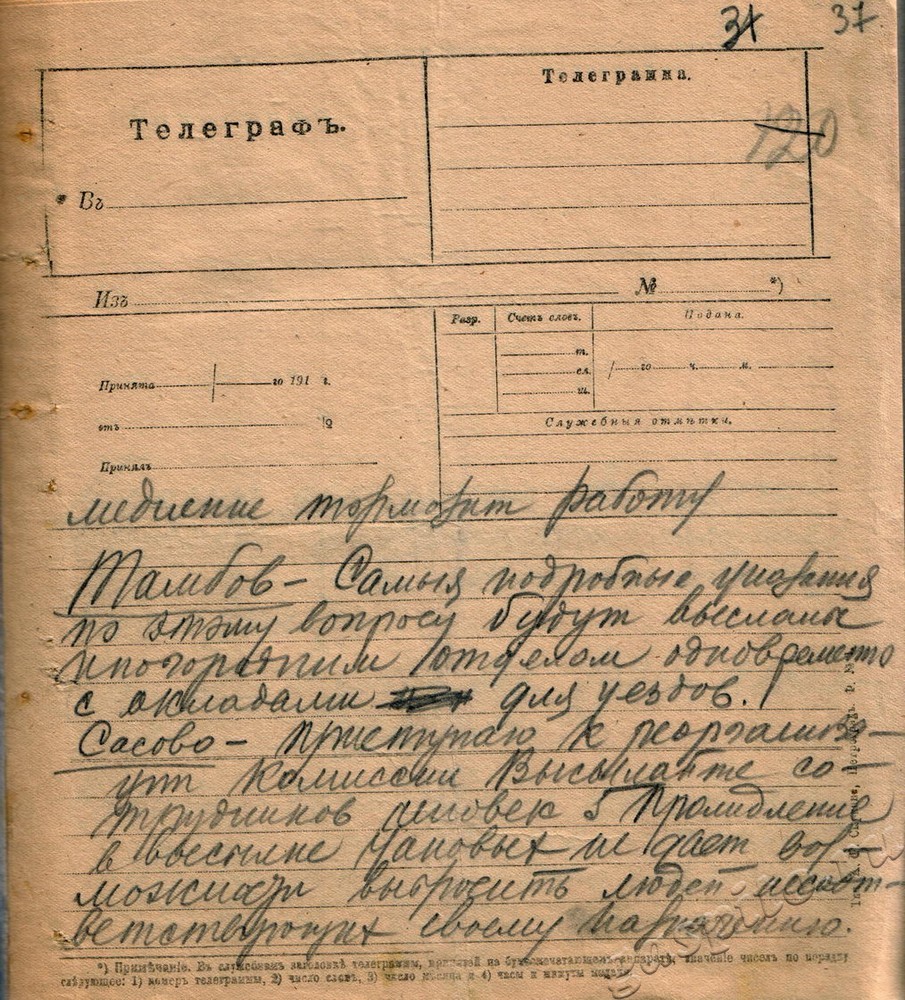 31 37
Телеграфъ.
Телеграмма.
120
Въ
Изъ № *)
Разр. Счетъ словъ. Подана.
т.
Принята го 191 г. сл. го ч. м.
ш.
отъ №
Служебныя отмѣтки.
Принялъ
медление тормозит работу
Тамбов – Самыя подробные указания
по этому вопросу будут высланы
иногородним отделом одновременно
с окладами для уездов.
Сасово – Приступаю к реорганиза-
ции комиссии Высылайте со-
трудников человек 5 Промедление
в высылке таковых не дает воз-
можности выбросить людей несоот-
ветствующих своему назначению.
*) Примѣчаніе. Въ служебномъ заголовкѣ телеграммы, принятой на буквопечатающемъ аппаратѣ, значеніе чиселъ по порядку
слѣдующее: 1) номеръ телеграммы, 2) число словъ, 3) число мѣсяца и 4) часы и минуты подачи.